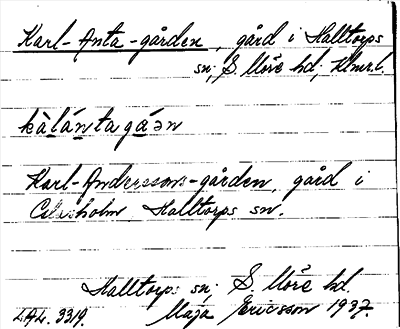 Karl-Anta-gården, gård i Halltorps
sn, S. Möre hd, Klmr.l.
kàlántagáən
Karl-Anderssons-gården, gård i
Halltorps sn.
Halltorps sn, S. Möre hd.
LAL. 3319. Maja Ericsson 1937.